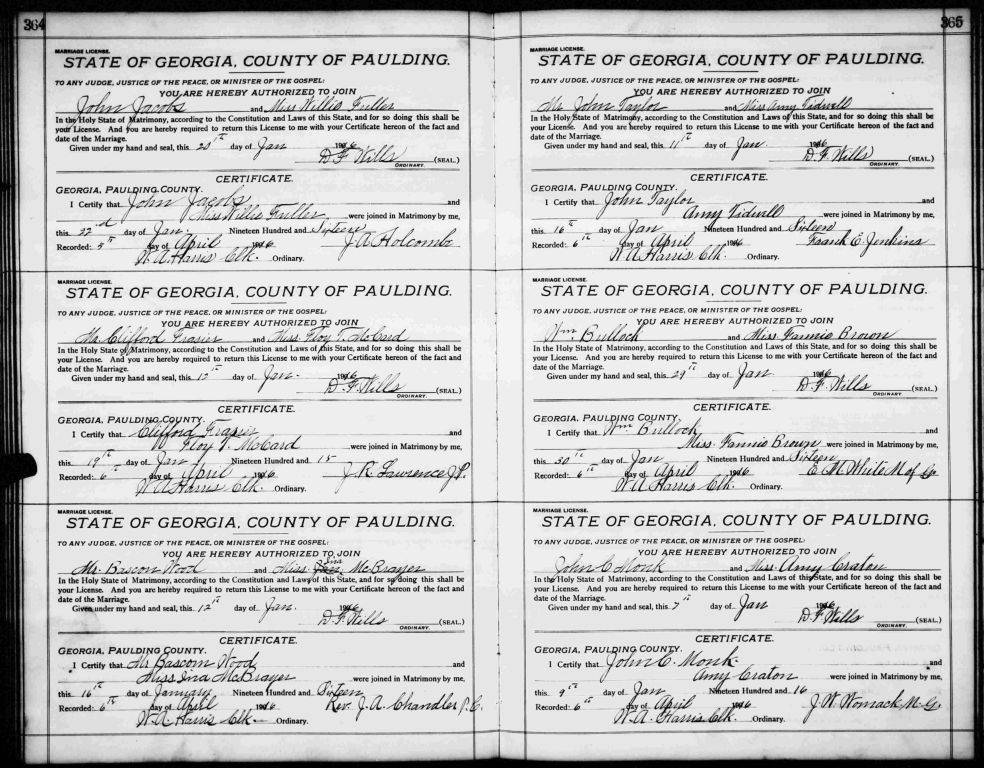 364
MARRIAGE LICENSE.
STATE OF GEORGIA, COUNTY OF PAULDING.
TO ANY JUDGE, JUSTICE OF THE PEACE, OR MINISTER OF THE GOSPEL:
YOU ARE HEREBY AUTHORIZED TO JOIN
John Jacobs and Miss Willie Fuller
In the Holy State of Matrimony, according to the Constitution and Laws of this State, and for so doing this shall be
your License. And you are hereby required to return this License to me with your Certificate hereon of the fact and
date of the Marriage.
Given under my hand and seal, this 20th day of Jan 1916
D. F. Wills (SEAL.)
ORDINARY.
CERTIFICATE.
GEORGIA, PAULDING COUNTY.
I Certify that John Jacobs and
Miss Willie Fuller were joined in Matrimony by me,
this 22d day of Jan. Nineteen Hundred and Sixteen
Recorded: 5th day of April 1916 J. A. Holcomb
W. A. Harris Clk. Ordinary.
MARRIAGE LICENSE.
STATE OF GEORGIA, COUNTY OF PAULDING.
TO ANY JUDGE, JUSTICE OF THE PEACE, OR MINISTER OF THE GOSPEL:
YOU ARE HEREBY AUTHORIZED TO JOIN
Mr. Clifford Frasier and Miss Floy V. McCard
In the Holy State of Matrimony, according to the Constitution and Laws of this State, and for so doing this shall be
your License. And you are hereby required to return this License to me with your Certificate hereon of the fact and
date of the Marriage.
Given under my hand and seal, this 12th day of Jan. 1916
D. F. Wills (SEAL.)
ORDINARY.
CERTIFICATE.
GEORGIA, PAULDING COUNTY.
I Certify that Clifford Frasier and
Floy V. McCard were joined in Matrimony by me,
this 19th day of Jan Nineteen Hundred and 15
Recorded: 6th day of April 1916 J. R. Lawrence J.P.
W. A. Harris Clk. Ordinary.
MARRIAGE LICENSE.
STATE OF GEORGIA, COUNTY OF PAULDING.
TO ANY JUDGE, JUSTICE OF THE PEACE, OR MINISTER OF THE GOSPEL:
YOU ARE HEREBY AUTHORIZED TO JOIN
Mr. Bascom Wood and Miss Ina McBrayer
In the Holy State of Matrimony, according to the Constitution and Laws of this State, and for so doing this shall be
your License. And you are hereby required to return this License to me with your Certificate hereon of the fact and
date of the Marriage.
Given under my hand and seal, this 12th day of Jan. 1916
D. F. Wills (SEAL.)
ORDINARY.
CERTIFICATE.
GEORGIA, PAULDING COUNTY.
I Certify that Mr Bascom Wood and
Miss Ina McBrayer were joined in Matrimony by me,
this 16th day of January Nineteen Hundred and Sixteen
Recorded: 6th day of April 1916 Rev. J. A. Chandler
W. A. Harris Clk. Ordinary.
365
MARRIAGE LICENSE.
STATE OF GEORGIA, COUNTY OF PAULDING.
TO ANY JUDGE, JUSTICE OF THE PEACE, OR MINISTER OF THE GOSPEL:
YOU ARE HEREBY AUTHORIZED TO JOIN
Mr John Taylor and Miss Amy Tidwell
In the Holy State of Matrimony, according to the Constitution and Laws of this State, and for so doing this shall be
your License. And you are hereby required to return this License to me with your Certificate hereon of the fact and
date of the Marriage.
Given under my hand and seal, this 11th day of Jan 1916
D. F. Wills (SEAL.)
ORDINARY.
CERTIFICATE.
GEORGIA, PAULDING COUNTY.
I Certify that John Taylor and
Amy Tidwell were joined in Matrimony by me,
this 16th day of Jan Nineteen Hundred and Sixteen
Recorded: 6th day of April 1916 Frank E. Jenkins
W. A. Harris Clk. Ordinary.
MARRIAGE LICENSE.
STATE OF GEORGIA, COUNTY OF PAULDING.
TO ANY JUDGE, JUSTICE OF THE PEACE, OR MINISTER OF THE GOSPEL:
YOU ARE HEREBY AUTHORIZED TO JOIN
Wm Bulloch and Miss Fannie Brown
In the Holy State of Matrimony, according to the Constitution and Laws of this State, and for so doing this shall be
your License. And you are hereby required to return this License to me with your Certificate hereon of the fact and
date of the Marriage.
Given under my hand and seal, this 29th day of Jan 1916
D. F. Wills (SEAL.)
ORDINARY.
CERTIFICATE.
GEORGIA, PAULDING COUNTY.
I Certify that Wm Bulloch and
Miss Fannie Brown were joined in Matrimony by me,
this 30th day of Jan Nineteen Hundred and Sixteen
Recorded: 6th day of April 1916 E. M. White M of G
W. A. Harris Clk. Ordinary.
MARRIAGE LICENSE.
STATE OF GEORGIA, COUNTY OF PAULDING.
TO ANY JUDGE, JUSTICE OF THE PEACE, OR MINISTER OF THE GOSPEL:
YOU ARE HEREBY AUTHORIZED TO JOIN
John C Monk and Miss Amy Craton
In the Holy State of Matrimony, according to the Constitution and Laws of this State, and for so doing this shall be
your License. And you are hereby required to return this License to me with your Certificate hereon of the fact and
date of the Marriage.
Given under my hand and seal, this 7th day of Jan 1916
D. F. Wills (SEAL.)
ORDINARY.
CERTIFICATE.
GEORGIA, PAULDING COUNTY.
I Certify that John C. Monk and
Amy Craton were joined in Matrimony by me,
this 9th day of Jan Nineteen Hundred and 16
Recorded: 6th day of April 1916 J. W. Womack M.G.
W. A. Harris Clk. Ordinary.